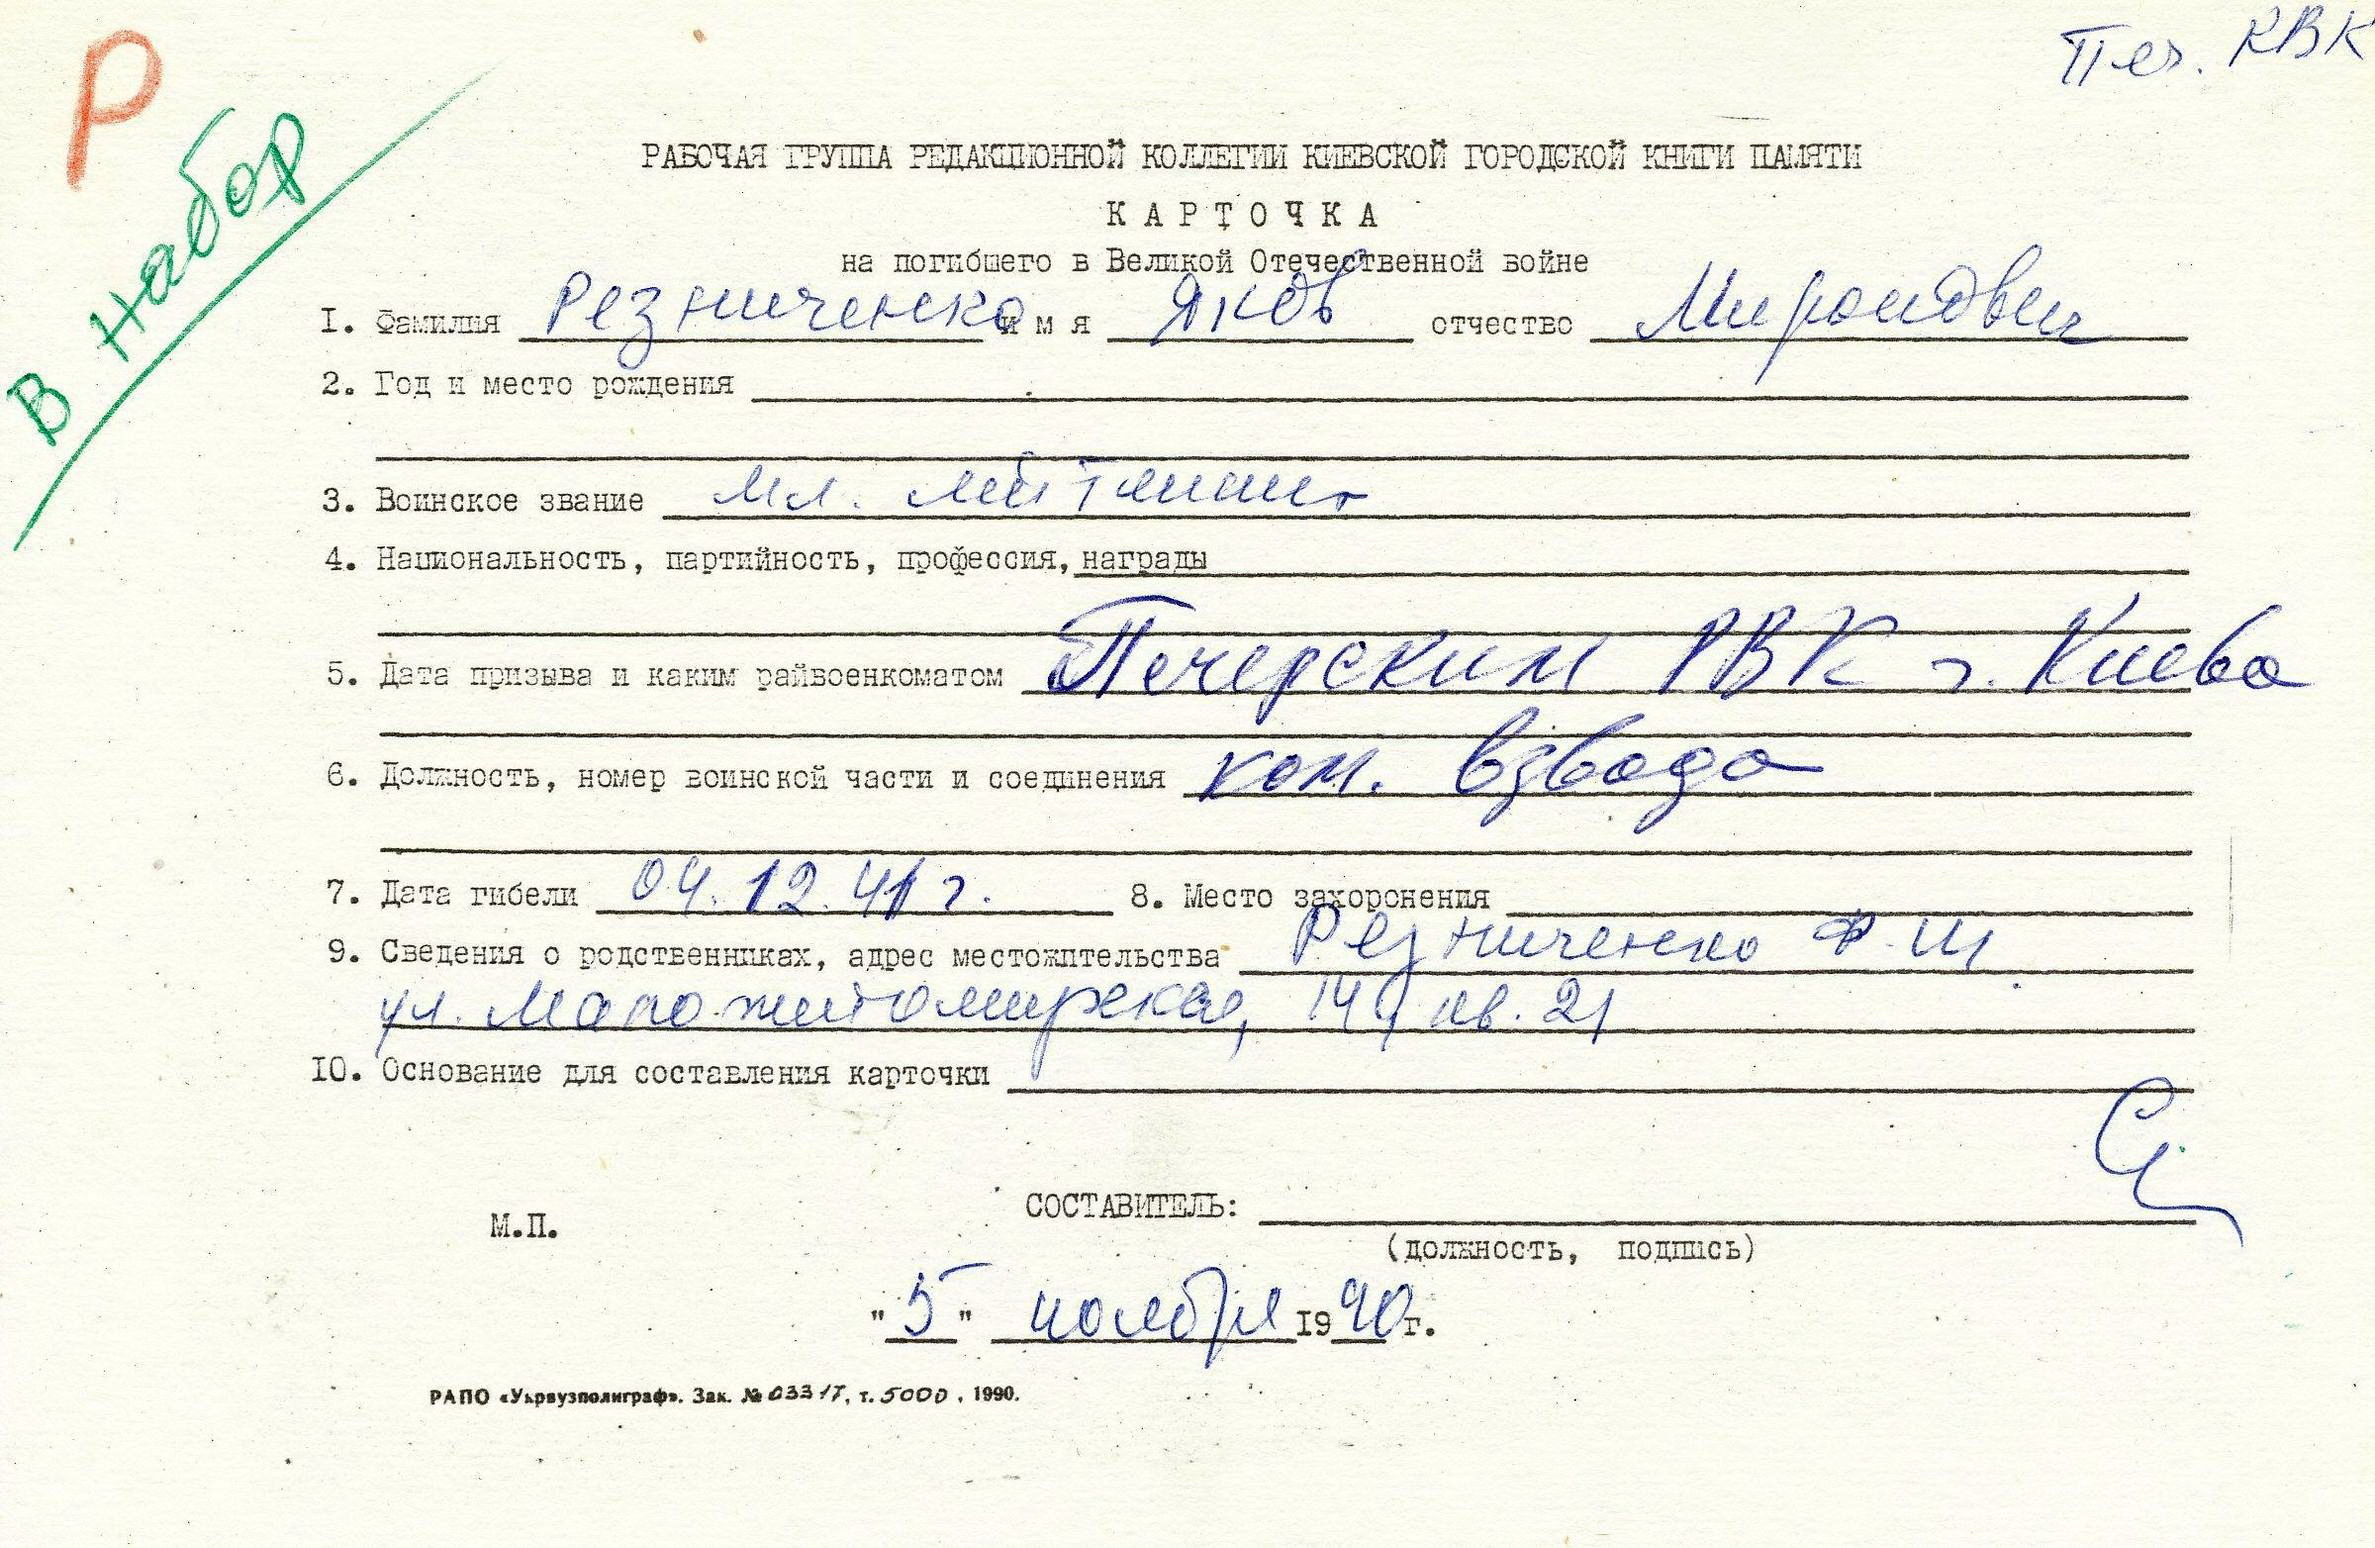 Р
Печ. РВК
В набор
РАБОЧАЯ ГРУППА РЕДАКЦИОННОЙ КОЛЛЕГИИ КИЕВСКОЙ ГОРОДСКОЙ КНИГИ ПАМЯТИ
КАРТОЧКА
на погибшего в Великой Отечественной войне
1. Фамилия Резниченко имя Яков отчество Миронович
2. Год и место рождения
3. Воинское звание мл. лейтенант
4. Национальность, партийность, профессия, награды
5. Дата призыва и каким райвоенкоматом Печерским РВК г. Киева
6. Должность, номер воинской части и соединения ком. взвода
7. Дата гибели 04.12.41 г. 8. Место захоронения
9. Сведения о родственниках, адрес местожительства Резниченко Ф. Ш.
ул. Мало-житомирская, 14, кв. 21
10. Основание для составления карточки
СОСТАВИТЕЛЬ:
М.П.
(должность, подпись)
"5" ноября 1990 г.
РАПО «Укрвузполиграф». Зак. № 03317, т. 5000, 1990.